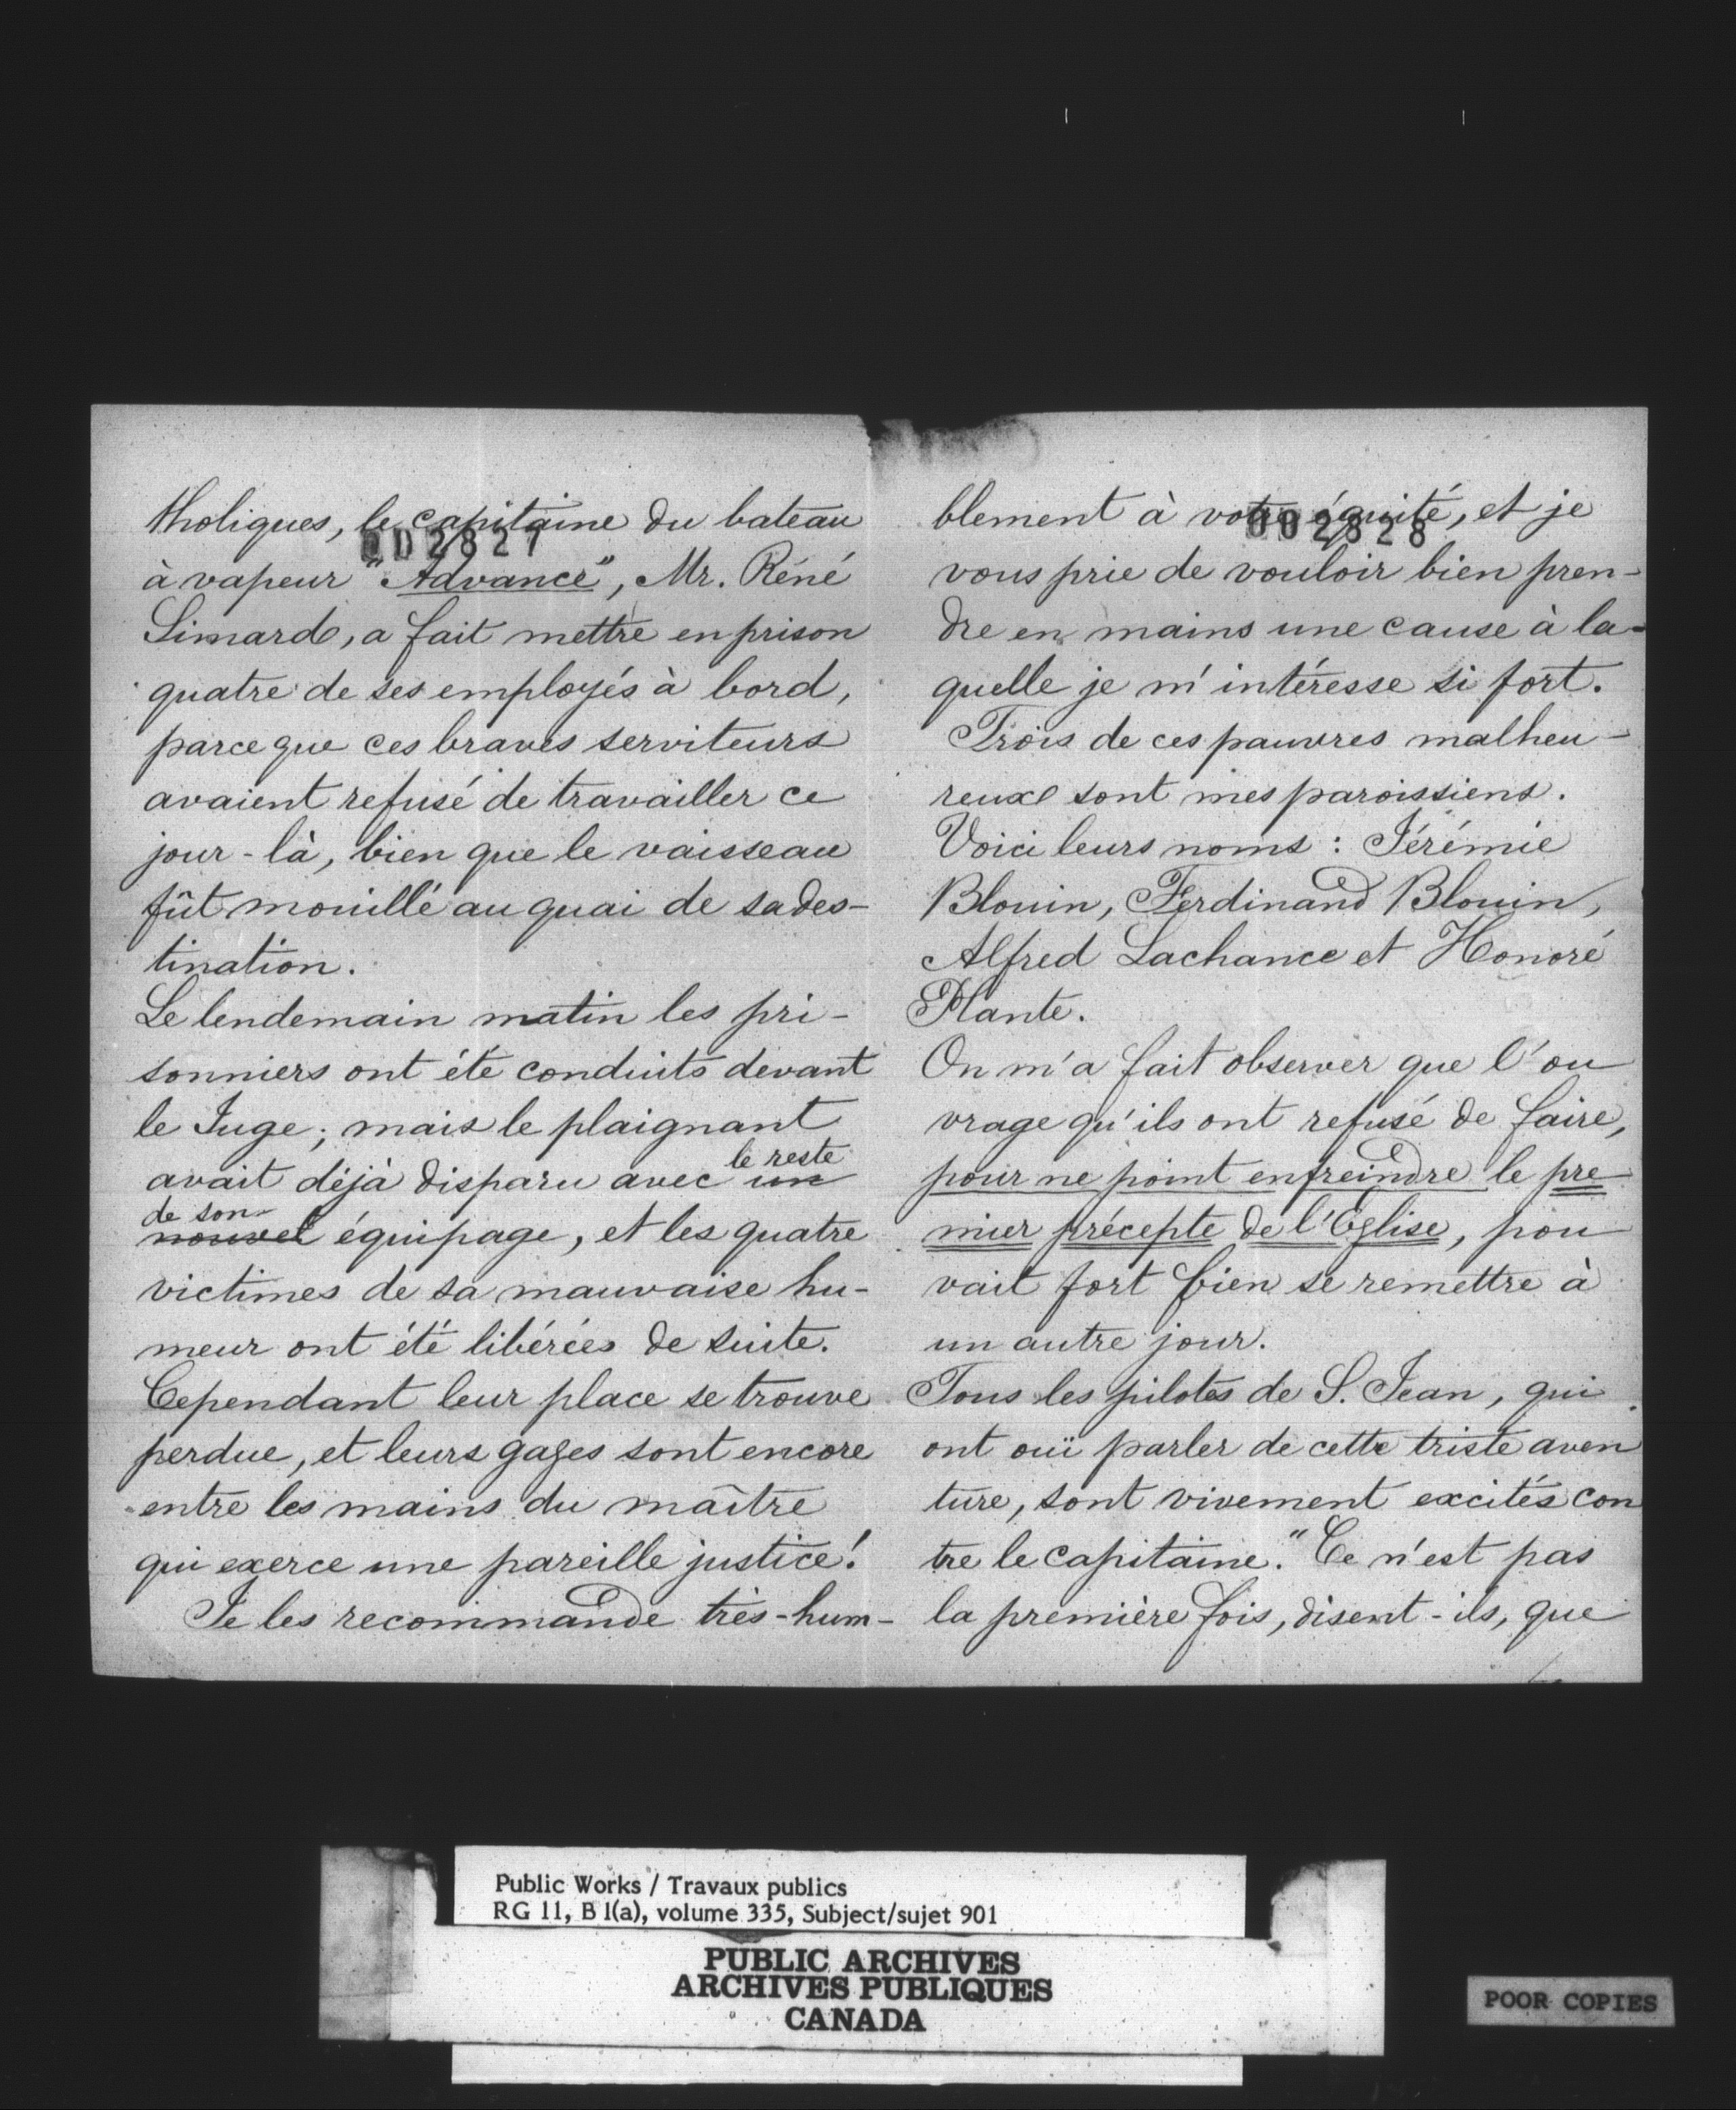 tholiques, le capitaine du bateau
002827
à vapeur "Advance", Mr. Réné
Simard, a fait mettre en prison
quatre de ses employés à bord,
parce que ces braves serviteurs
avaient refusé de travailler ce
jour-là, bien que le vaisseau
fût mouillé au quai de sa des-
tination.
Le lendemain matin les pri-
sonniers ont été conduits devant
le Juge; mais le plaignant
le reste
avait déjà disparu avec un
de son
nouvel équipage, et les quatre
victimes de sa mauvaise hu-
meur ont été libérées de suite.
Cependant leur place se trouve
perdue, et leurs gages sont encore
entre les mains du maître
qui exerce une pareille justice!
Je les recommande très-hum-
blement à votre équité, et je
002828
vous prie de vouloir bien pren-
dre en mains une cause à la-
quelle je m'intéresse si fort.
Trois de ces pauvres malheu-
reux sont mes paroissiens.
Voici leurs noms : Jérémie
Blouin, Ferdinand Blouin,
Alfred Lachance et Honoré
Plante.
On m'a fait observer que l'ou
vrage qu'ils ont refusé de faire,
pour ne point enfreindre le pre
mier précepte de l'Eglise, pou
vait fort bien se remettre à
un autre jour.
Tous les pilotes de S. Jean, qui
ont ouï parler de cette triste aven
ture, sont vivement excités con
tre le capitaine. "Ce n'est pas
la première fois, disent-ils, que
Public Works / Travaux publics
RG 11, B 1(a), volume 335, Subject/sujet 901
PUBLIC ARCHIVES
ARCHIVES PUBLIQUES
CANADA
POOR COPIES